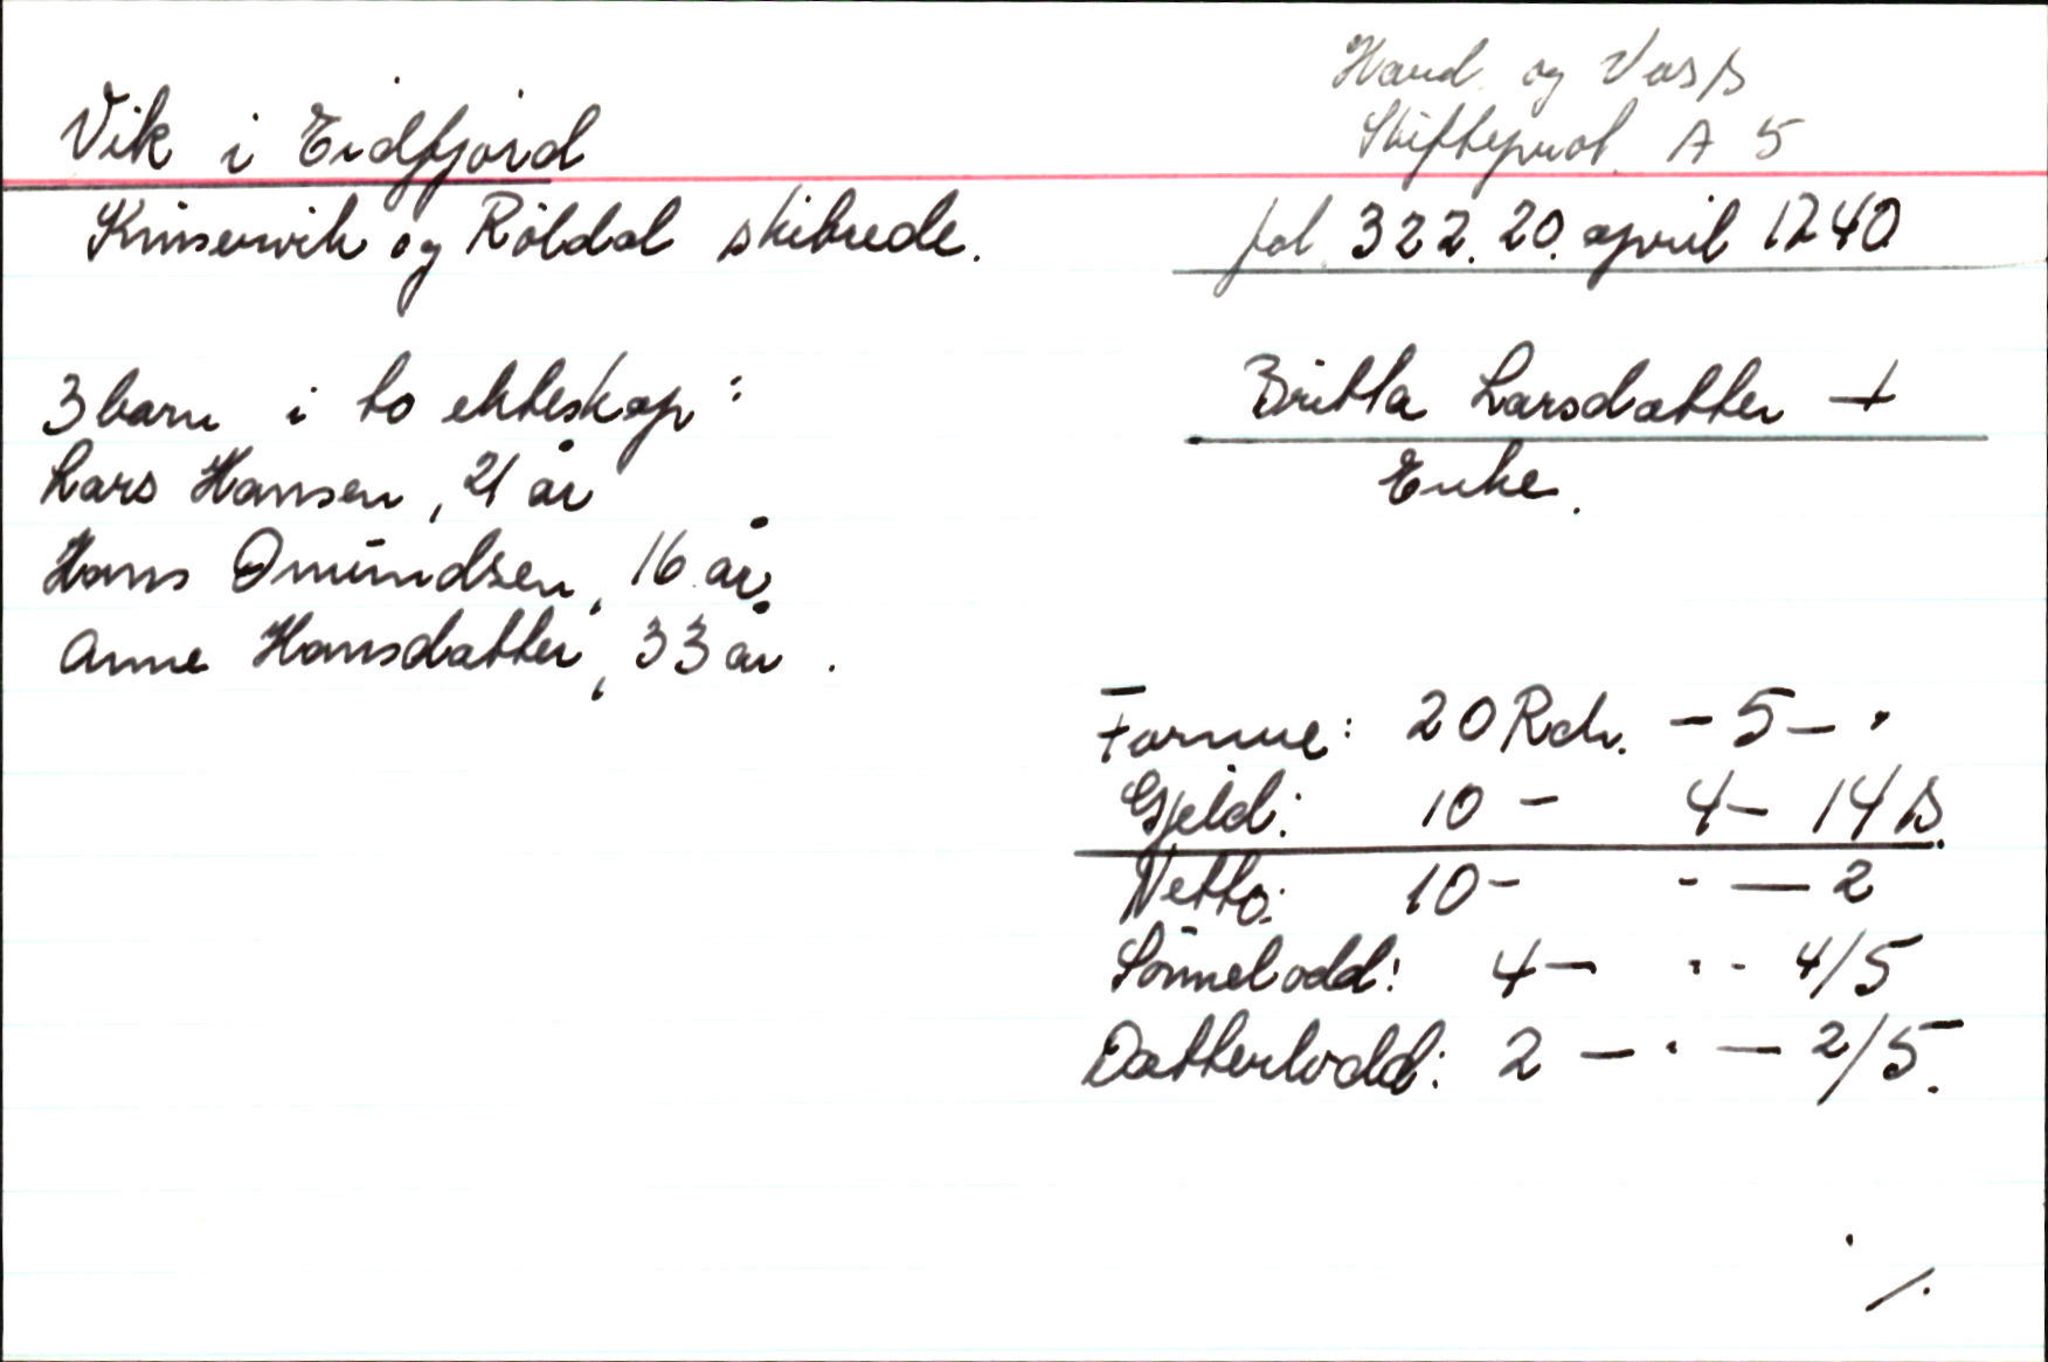 Vik i Eidfjord
Kinservik og Röldal skibrede.
Hard. og Voss
Skifteprot. A 5
fol. 322. 20. april 1740
3 barn i to ekteskap:
Lars Hansen, 21 år
Hans Omundsen, 16 år,
Anne Hansdatter, 33 år.
Britta Larsdatter +
Enke.
Formue: 20 Rdr. - 5 - .
Gjeld: 10 - 4 - 14 s.
Netto: 10 - - — 2
Sönnelodd: 4 - . - 4/5
Datterlodd: 2 - . - 2/5.
/.